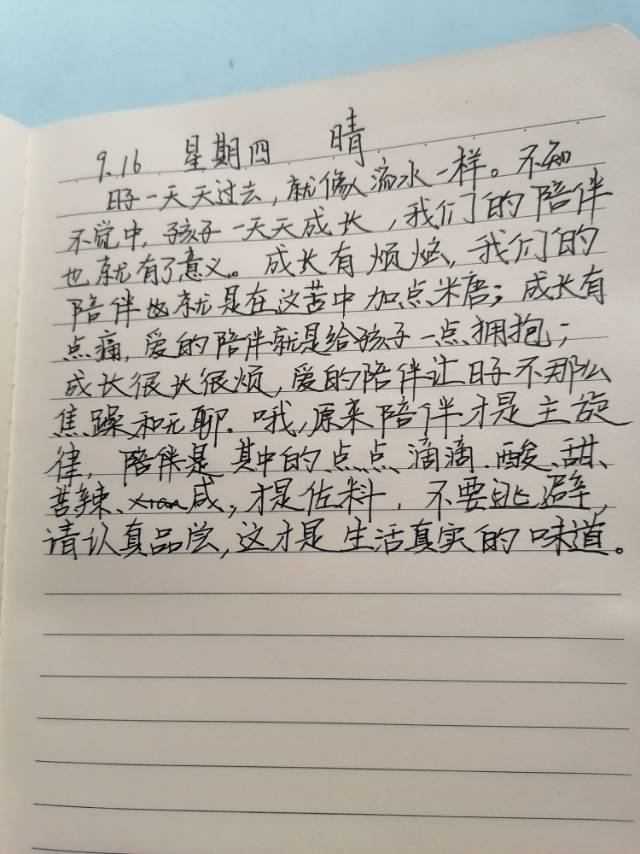 9.16 星期四 晴
日子一天天过去，就像流水一样。不知
不觉中，孩子一天天成长，我们的陪伴
也就有了意义。成长有烦恼，我们的
陪伴也就是在这苦中加点米唐；成长有
点痛，爱的陪伴就是给孩子一点拥抱；
成长很长很烦，爱的陪伴让日子不那么
焦躁和无聊。哦，原来陪伴才是主旋
律，陪伴是其中的点点滴滴。酸、甜、
苦辣、咸，才是佐料，不要逃避，
请认真品尝，这才是生活真实的味道。